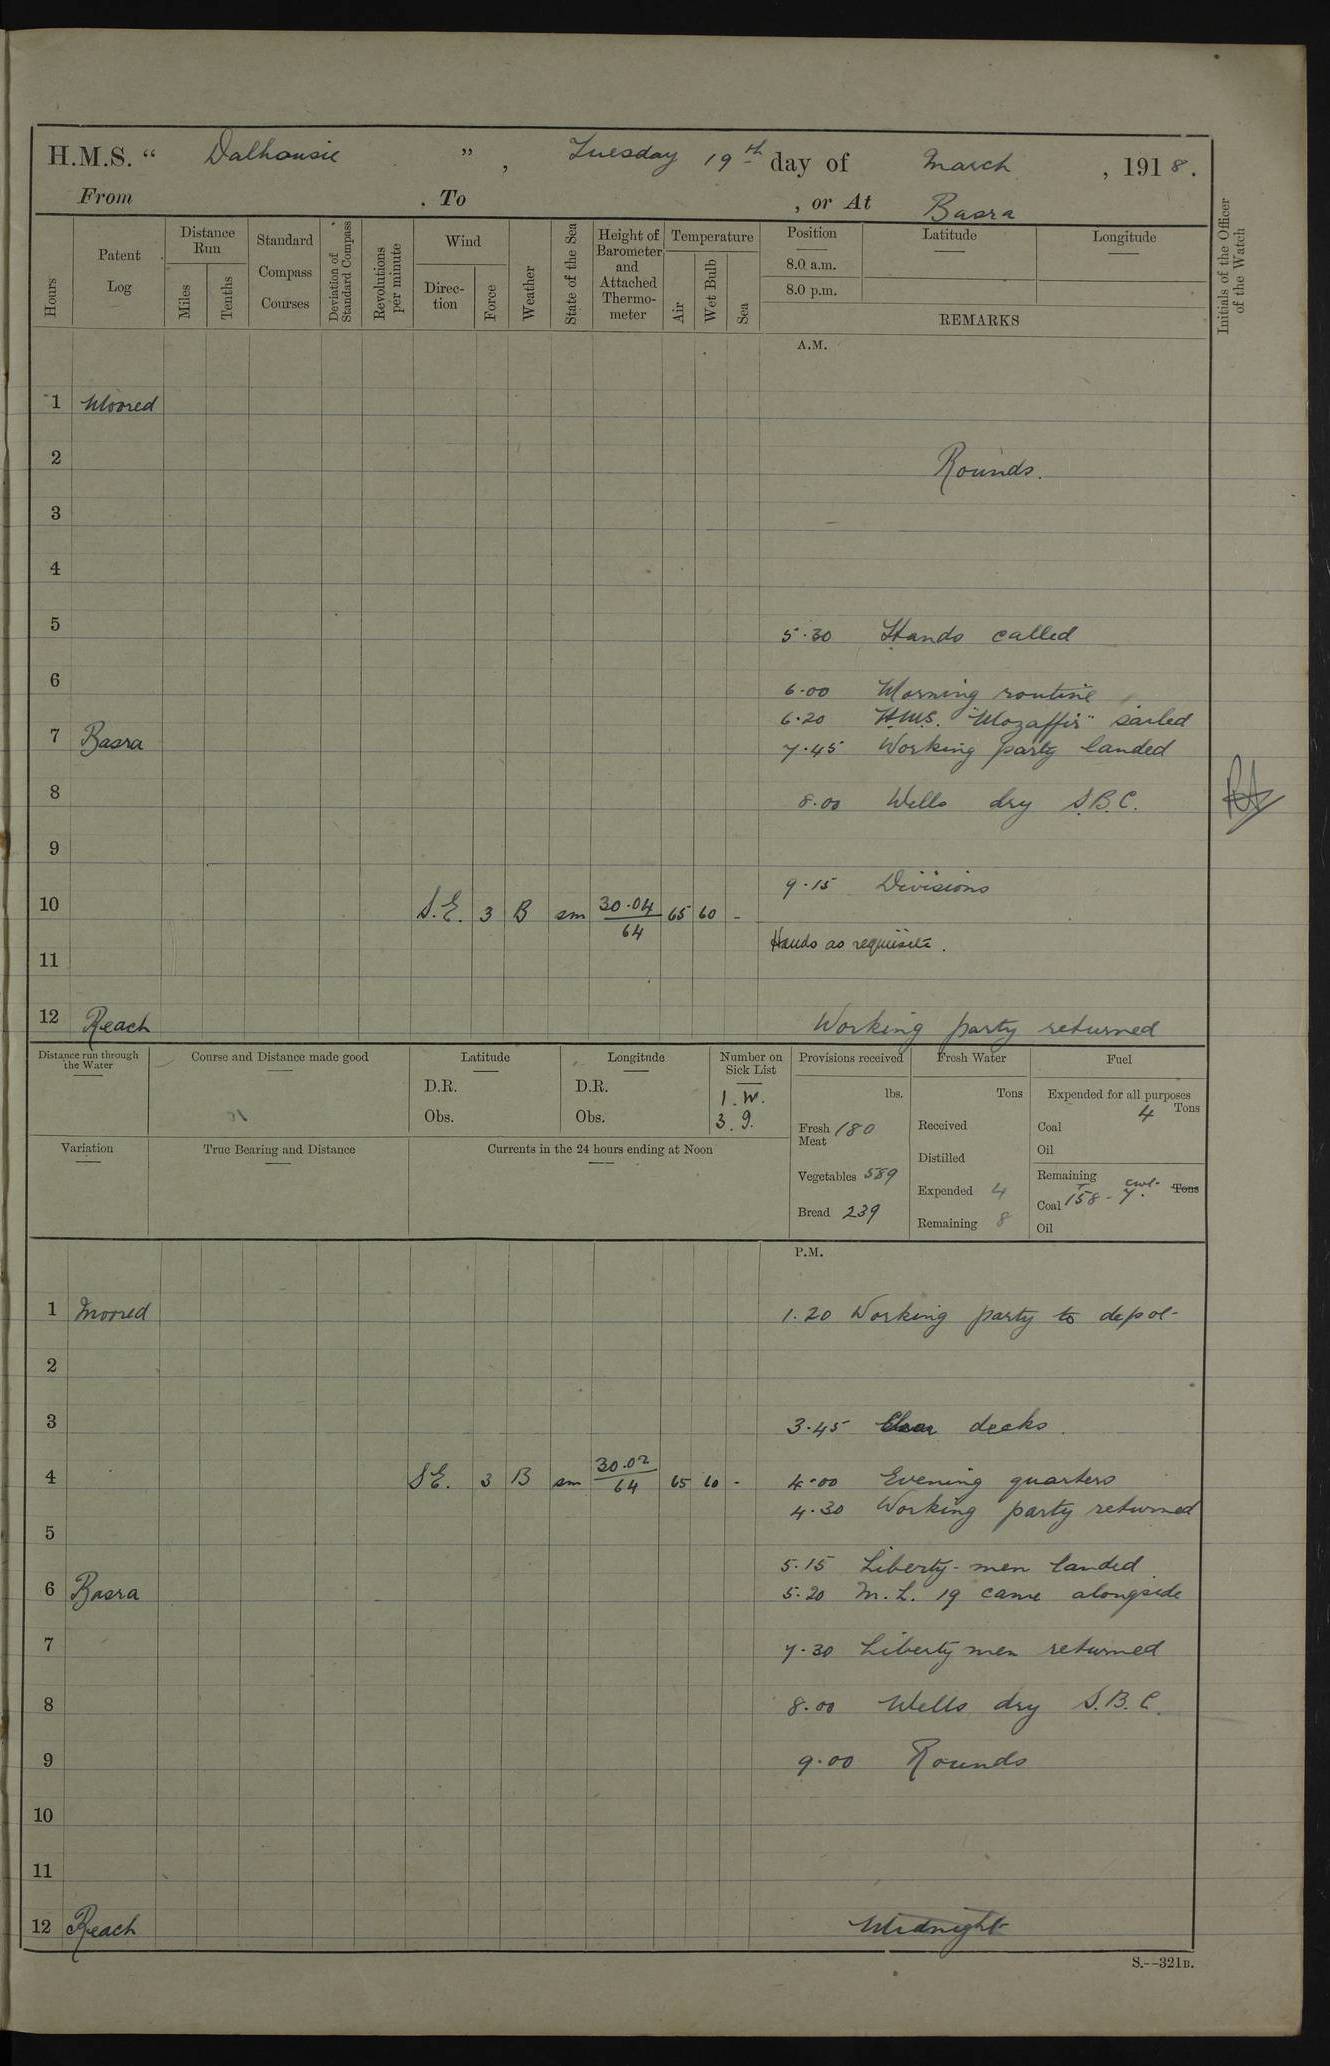 H.M.S. “ Dalhousie ” , Tuesday 19th day of March , 1918.
From . To , or At Basra
Hours
Patent Log
Distance Run
Miles
Tenths
Standard Compass Courses
Deviation of Standard Compass
Revolutions per minute
Wind
Direc-tion
Force
Weather
State of the Sea
Height of Barometer and Attached Thermo-meter
Temperature
Air
Wet Bulb
Sea
Position
8.0 a.m.
8.0 p.m.
Latitude
Longitude
REMARKS
Initials of the Officer of the Watch
A.M.
1 Moored
2 Rounds.
3
4
5 5.30 Hands called
6 6.00 Morning routine
6.20 H.M.S. "Mozaffir" sailed
7 Basra 7.45 Working party landed
8 8.00 Wells dry S.B.C.
9
9.15 Divisions
10 S.E. 3 B sm 30.04 / 64 65 60 -
Hands as requisite.
11
12 Reach Working party returned
Distance run through the Water
Course and Distance made good
Latitude
D.R.
Obs.
Longitude
D.R.
Obs.
Number on Sick List
1. W.
3. 9.
Provisions received
lbs.
Fresh Meat 180
Vegetables 589
Bread 239
Fresh Water
Tons
Received
Distilled
Expended 4
Remaining 8
Fuel
Expended for all purposes
4 Tons
Coal
Oil
Remaining
Coal T 158 - cwt. 7. Tons
Oil
Variation
True Bearing and Distance
Currents in the 24 hours ending at Noon
P.M.
1 Moored 1.20 Working party to depot
2
3 3.45 Clear decks.
4 SE. 3 B sm 30.02 / 64 65 60 - 4.00 Evening quarters
4.30 Working party returned
5
5.15 Liberty-men landed.
6 Basra 5.20 M.L. 19 came alongside
7 7.30 Liberty men returned
8 8.00 Wells dry S.B.C.
9 9.00 Rounds
10
11
12 Reach Midnight
S.--321B.